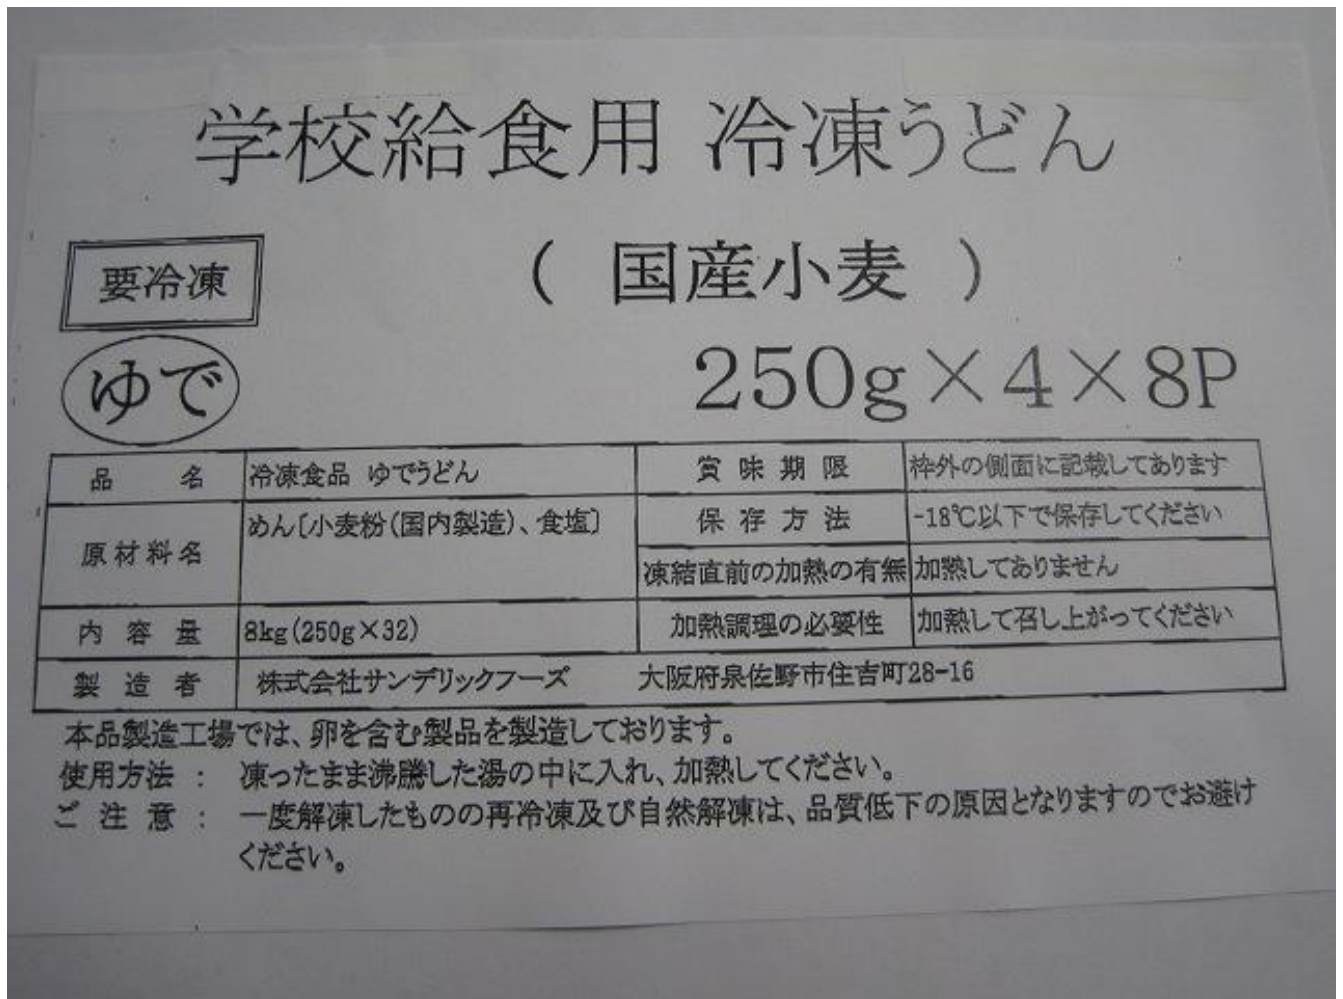 学校給食用 冷凍うどん
要冷凍
( 国産小麦 )
ゆで
250g×4×8P
品名 冷凍食品 ゆでうどん 賞味期限 枠外の側面に記載してあります
原材料名 めん〔小麦粉(国内製造)、食塩〕 保存方法 -18℃以下で保存してください
凍結直前の加熱の有無 加熱してありません
内容量 8kg(250g×32) 加熱調理の必要性 加熱して召し上がってください
製造者 株式会社サンデリックフーズ 大阪府泉佐野市住吉町28-16
本品製造工場では、卵を含む製品を製造しております。
使用方法 : 凍ったまま沸騰した湯の中に入れ、加熱してください。
ご注意 : 一度解凍したものの再冷凍及び自然解凍は、品質低下の原因となりますのでお避け
ください。